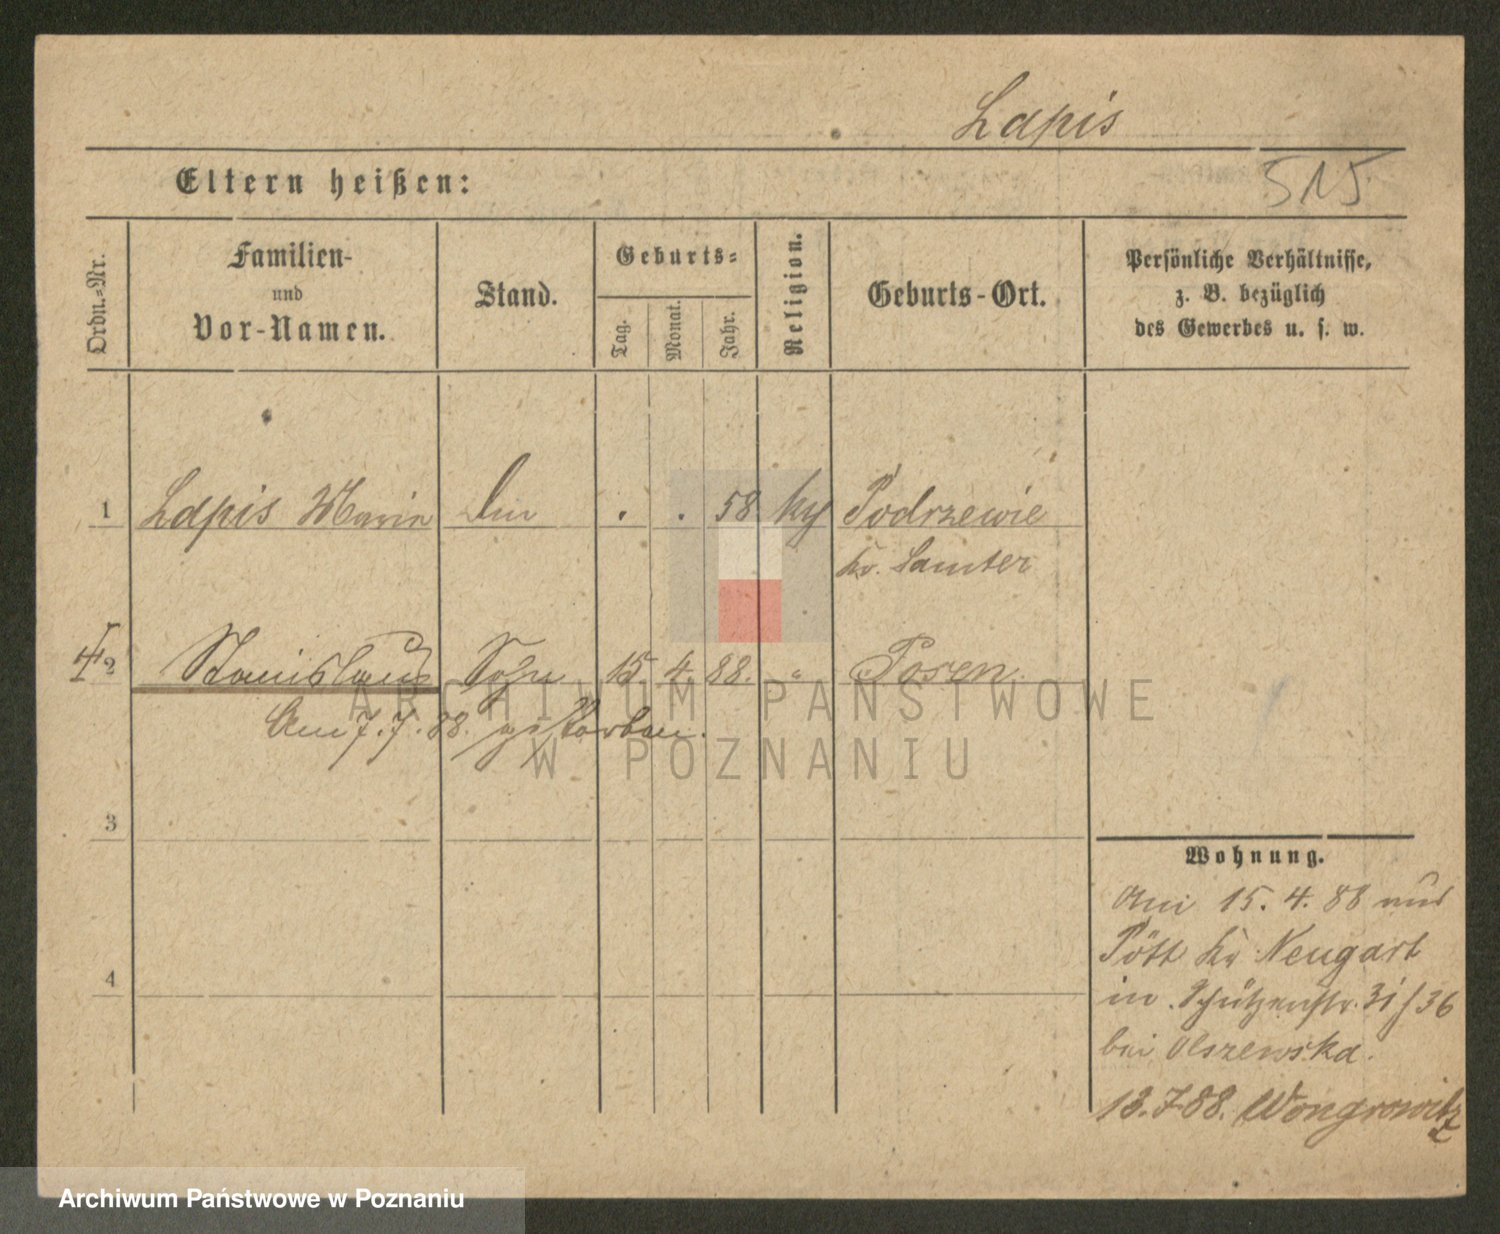 Lapis
Eltern heißen:
515
Ordn.-Nr.
Familien-
und
Vor-Namen.
Stand.
Geburts-
Tag.
Monat.
Jahr.
Religion.
Geburts-Ort.
Persönliche Verhältnisse,
z. B. bezüglich
des Gewerbes u. s. w.
1 Lapis Marie . . 58 Podrzewie
Kr. Samter
2 Stanislaus Sohn 15. 4. 88. " Posen.
Am 7. 7. 88. gestorben.
3
4
Wohnung.
Am 15. 4. 88 aus
Kr.
in Schützenstr. 31 / 36
bei Olszewska.
13. 7. 88. Wongrowitz
ARCHIWUM PAŃSTWOWE
W POZNANIU
Archiwum Państwowe w Poznaniu